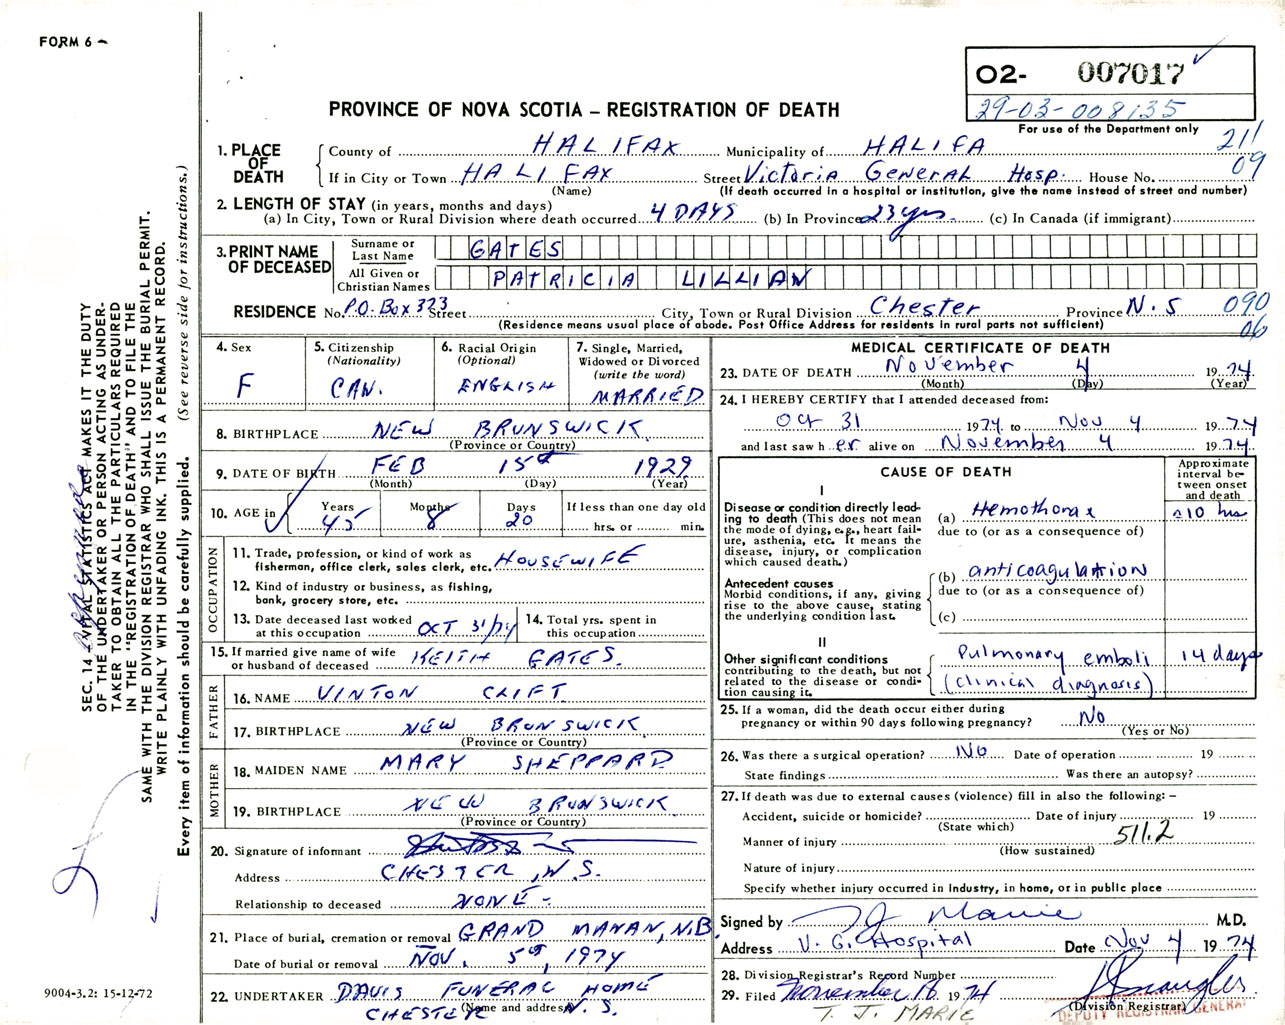 FORM 6 -
O2- 007017
29-03-008135
For use of the Department only
PROVINCE OF NOVA SCOTIA – REGISTRATION OF DEATH
211
09
1. PLACE OF DEATH
County of HALIFAX Municipality of HALIFA
If in City or Town HALIFAX Street Victoria General Hosp. House No.
(Name) (If death occurred in a hospital or institution, give the name instead of street and number)
2. LENGTH OF STAY (in years, months and days)
(a) In City, Town or Rural Division where death occurred 4 DAYS (b) In Province 23 yrs. (c) In Canada (if immigrant)
3. PRINT NAME OF DECEASED
Surname or Last Name GATES
All Given or Christian Names PATRICIA LILLIAN
RESIDENCE No. P.O. Box 323 Street City, Town or Rural Division Chester Province N.S
(Residence means usual place of abode. Post Office Address for residents in rural parts not sufficient)
090
06
4. Sex
F
5. Citizenship
(Nationality)
CAN.
6. Racial Origin
(Optional)
ENGLISH
7. Single, Married,
Widowed or Divorced
(write the word)
MARRIED
8. BIRTHPLACE NEW BRUNSWICK.
(Province or Country)
9. DATE OF BIRTH FEB 15th 1929
(Month) (Day) (Year)
10. AGE in Years Months Days If less than one day old
45 8 20 hrs. or min.
OCCUPATION
11. Trade, profession, or kind of work as
fisherman, office clerk, sales clerk, etc. HOUSEWIFE
12. Kind of industry or business, as fishing,
bank, grocery store, etc.
13. Date deceased last worked
at this occupation OCT 31/74
14. Total yrs. spent in
this occupation
15. If married give name of wife
or husband of deceased KEITH GATES.
FATHER
16. NAME VINTON CLIFT.
17. BIRTHPLACE NEW BRUNSWICK
(Province or Country)
MOTHER
18. MAIDEN NAME MARY SHEPPARD
19. BIRTHPLACE NEW BRUNSWICK
(Province or Country)
20. Signature of informant
Address CHESTER, N.S.
Relationship to deceased NONE -
21. Place of burial, cremation or removal GRAND MANAN, N.B.
Date of burial or removal NOV. 5th, 1974
22. UNDERTAKER DAVIS FUNERAL HOME
(Name and address)
CHESTER N.S.
MEDICAL CERTIFICATE OF DEATH
23. DATE OF DEATH November 4 1974
(Month) (Day) (Year)
24. I HEREBY CERTIFY that I attended deceased from:
Oct 31 1974 to Nov 4 1974
and last saw h er alive on November 4 1974
CAUSE OF DEATH
Approximate
interval be-
tween onset
and death
I
Disease or condition directly lead-
ing to death (This does not mean
the mode of dying, e.g., heart fail-
ure, asthenia, etc. It means the
disease, injury, or complication
which caused death.)
(a) Hemothorax 10 hrs
due to (or as a consequence of)
Antecedent causes
Morbid conditions, if any, giving
rise to the above cause, stating
the underlying condition last.
(b) anticoagulation
due to (or as a consequence of)
(c)
II
Other significant conditions
contributing to the death, but not
related to the disease or condi-
tion causing it.
Pulmonary emboli 14 days
(clinical diagnosis)
25. If a woman, did the death occur either during
pregnancy or within 90 days following pregnancy? No
(Yes or No)
26. Was there a surgical operation? No Date of operation 19
State findings Was there an autopsy?
27. If death was due to external causes (violence) fill in also the following: –
Accident, suicide or homicide? Date of injury 19
(State which)
511.2
Manner of injury
(How sustained)
Nature of injury
Specify whether injury occurred in industry, in home, or in public place
Signed by T J Marie M.D.
Address V. G. Hospital Date Nov 4 1974
28. Division Registrar's Record Number
29. Filed November 18 1974
(Division Registrar)
DEPUTY REGISTRAR GENERAL
T. J. MARIE
SEC. 14 – VITAL STATISTICS ACT MAKES IT THE DUTY
OF THE UNDERTAKER OR PERSON ACTING AS UNDER-
TAKER TO OBTAIN ALL THE PARTICULARS REQUIRED
IN THE "REGISTRATION OF DEATH" AND TO FILE THE
SAME WITH THE DIVISION REGISTRAR WHO SHALL ISSUE THE BURIAL PERMIT.
WRITE PLAINLY WITH UNFADING INK. THIS IS A PERMANENT RECORD.
Every item of information should be carefully supplied. (See reverse side for instructions.)
9004-3.2: 15-12-72